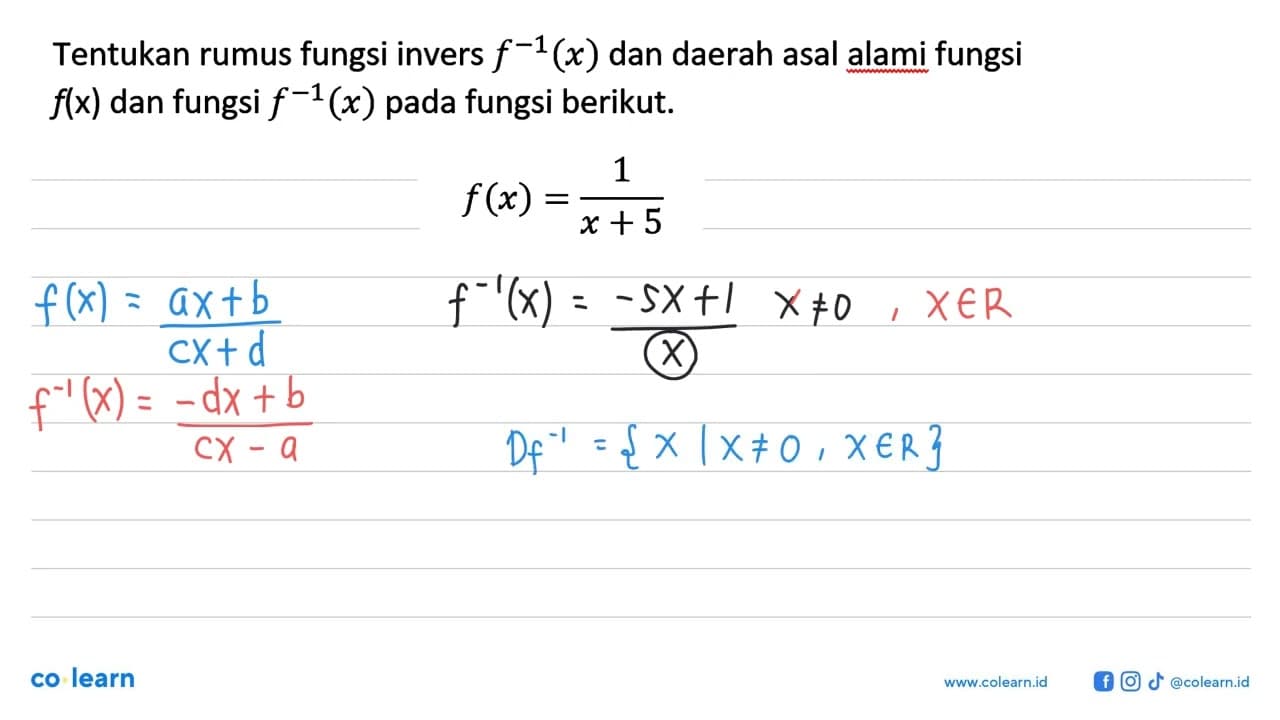 Tentukan rumus fungsi invers f⁻¹(x) dan daerah asal alami fungsi
f(x) dan fungsi f⁻¹(x) pada fungsi berikut.
f(x) = 1/(x + 5)
f(x) = (ax+b)/(cx+d)
f⁻¹(x) = (-dx+b)/(cx-a)
f⁻¹(x) = (-5x+1)/x x≠0 , x∈R
Df⁻¹ = {x | x≠0 , x∈R}
co learn
www.colearn.id
@colearn.id